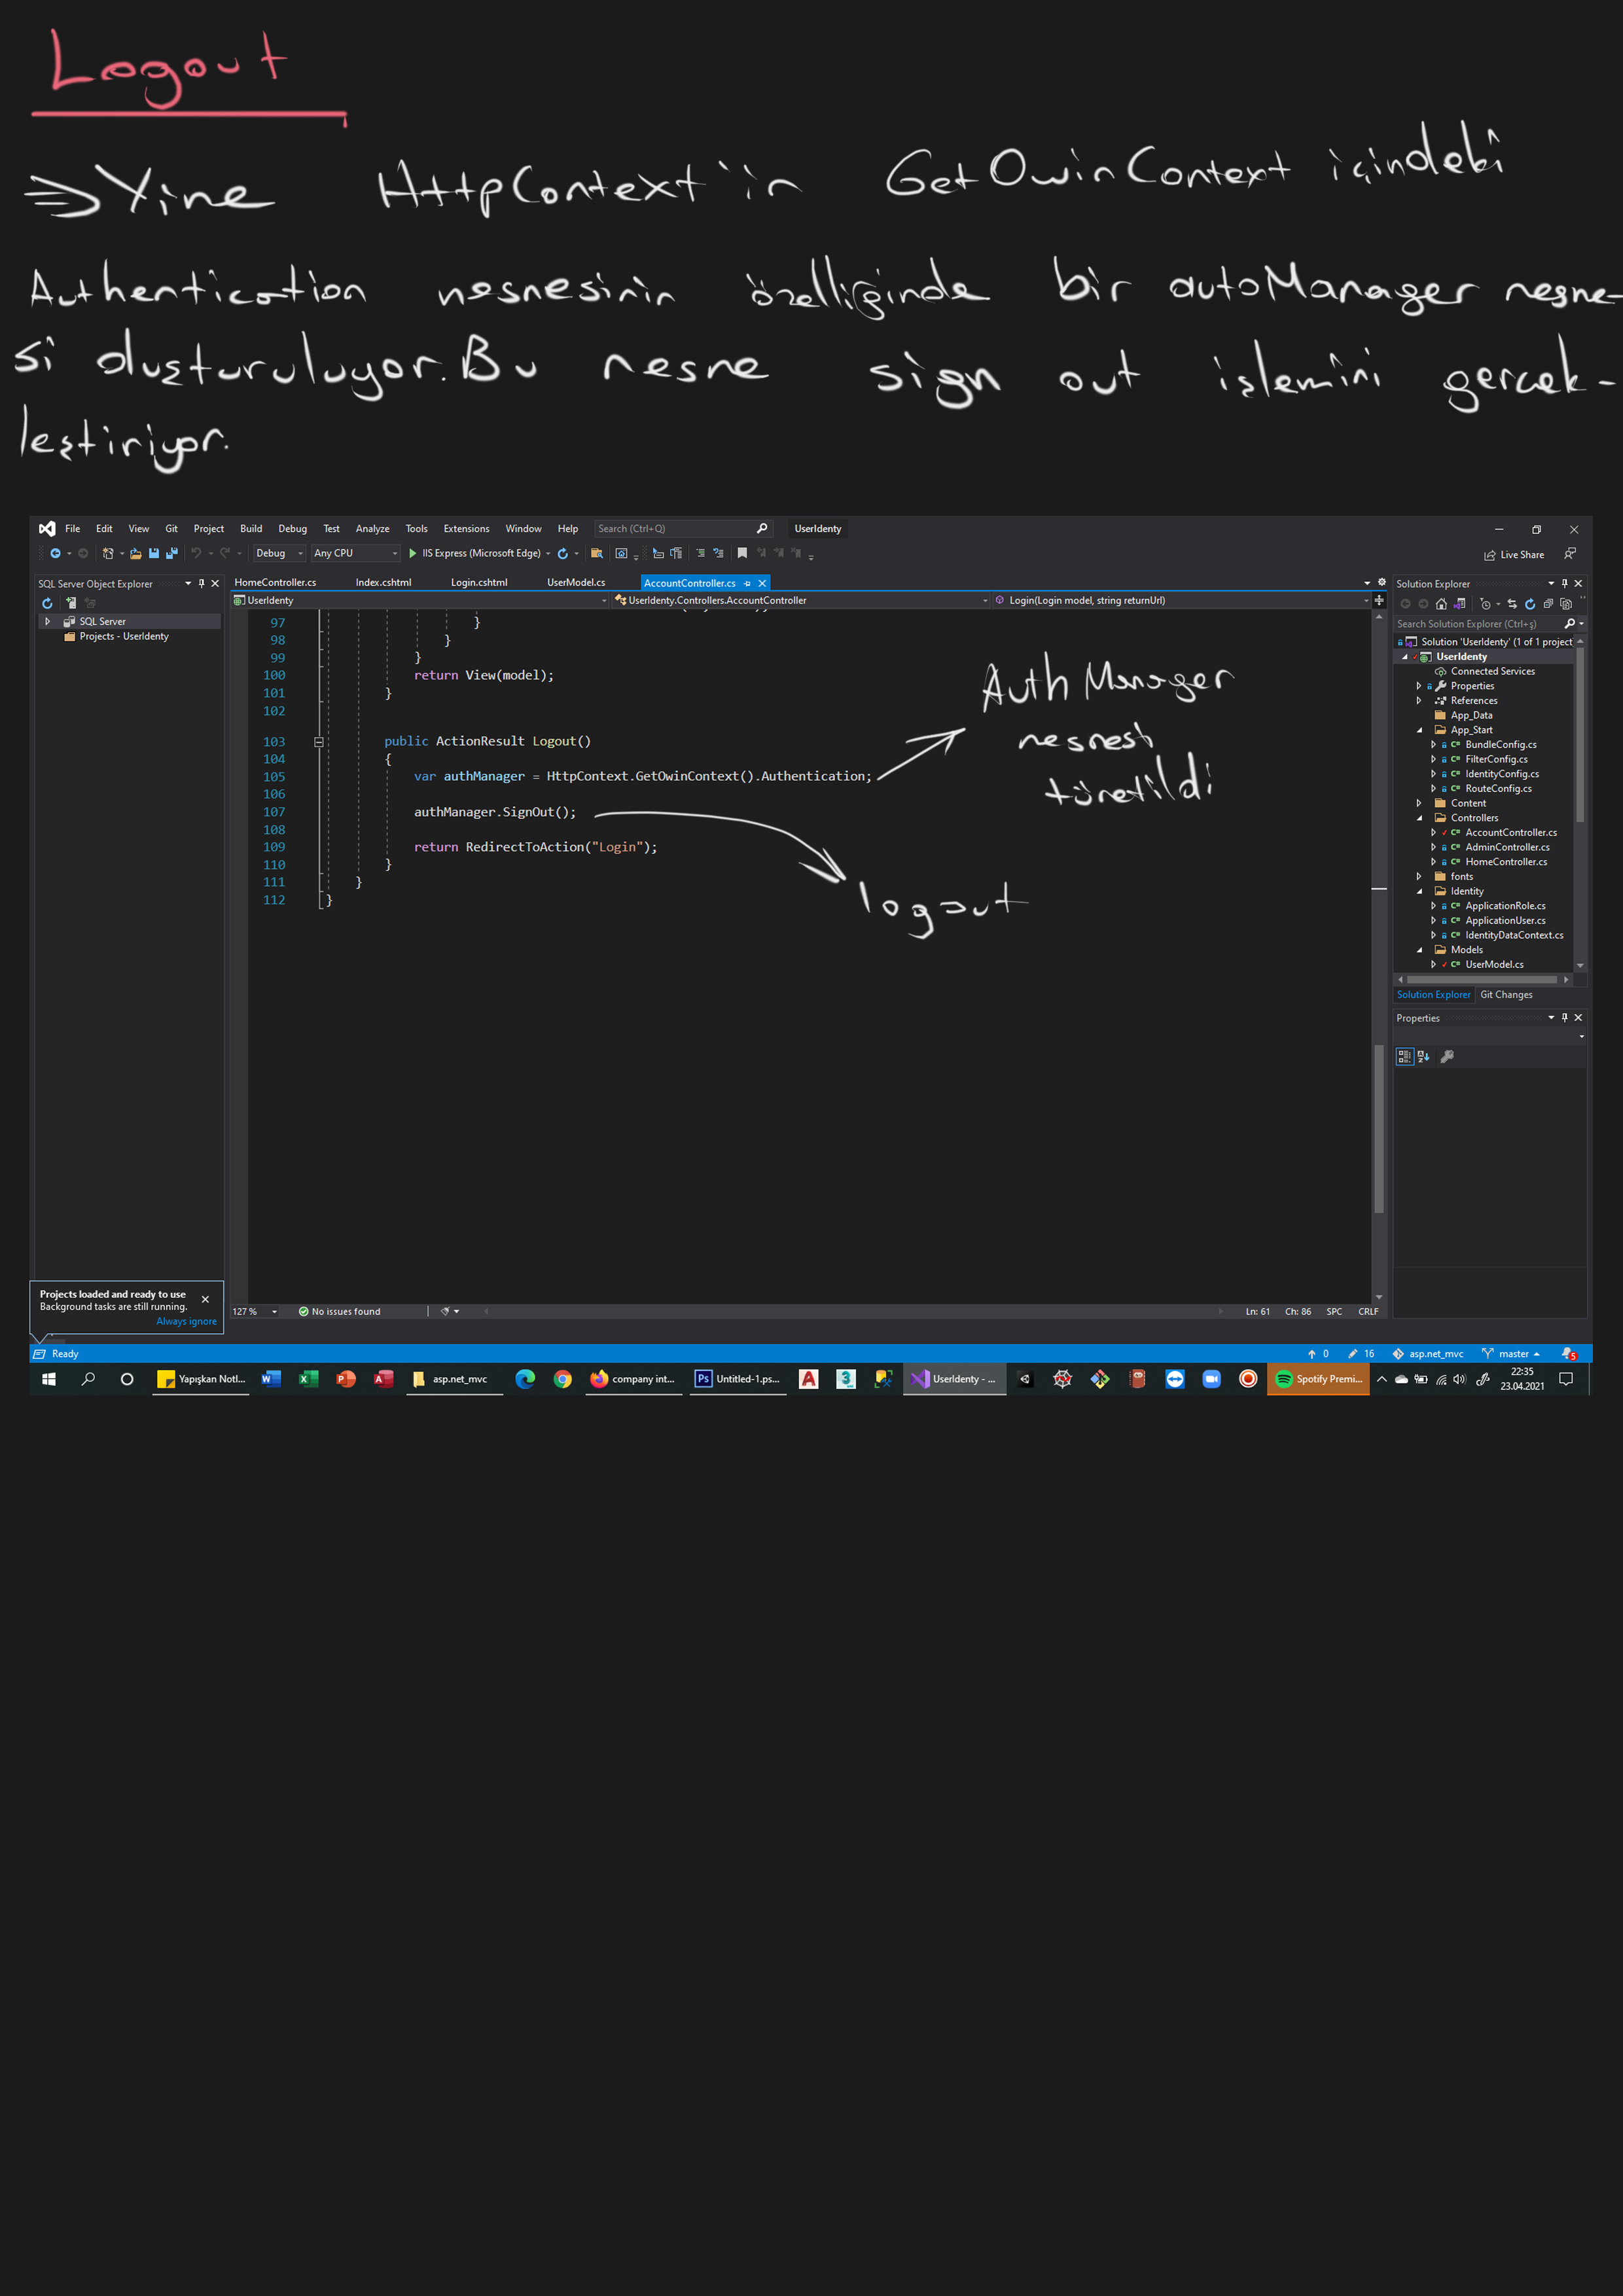 Logout
⇒ Yine HttpContext'in GetOwinContext içindeki
Authentication nesnesinin özelliğinde bir autoManager nesne-
si oluşturuluyor. Bu nesne sign out işlemini gercek-
leştiriyor.
File Edit View Git Project Build Debug Test Analyze Tools Extensions Window Help Search (Ctrl+Q) UserIdenty
Debug Any CPU IIS Express (Microsoft Edge) Live Share
SQL Server Object Explorer
SQL Server
Projects - UserIdenty
HomeController.cs Index.cshtml Login.cshtml UserModel.cs AccountController.cs
UserIdenty UserIdenty.Controllers.AccountController Login(Login model, string returnUrl)
97 }
98 }
99 }
100 return View(model);
101 }
102
103 public ActionResult Logout()
104 {
105 var authManager = HttpContext.GetOwinContext().Authentication;
106
107 authManager.SignOut();
108
109 return RedirectToAction("Login");
110 }
111 }
112 }
Auth Manager
nesnesi
türetildi
logout
Solution Explorer
Search Solution Explorer (Ctrl+ş)
Solution 'UserIdenty' (1 of 1 project
UserIdenty
Connected Services
Properties
References
App_Data
App_Start
BundleConfig.cs
FilterConfig.cs
IdentityConfig.cs
RouteConfig.cs
Content
Controllers
AccountController.cs
AdminController.cs
HomeController.cs
fonts
Identity
ApplicationRole.cs
ApplicationUser.cs
IdentityDataContext.cs
Models
UserModel.cs
Solution Explorer Git Changes
Properties
Projects loaded and ready to use
Background tasks are still running.
Always ignore
127 % No issues found Ln: 61 Ch: 86 SPC CRLF
Ready 0 16 asp.net_mvc master 5
Yapışkan Notl... asp.net_mvc company int... Untitled-1.ps... UserIdenty - ... Spotify Premi... 22:35
23.04.2021